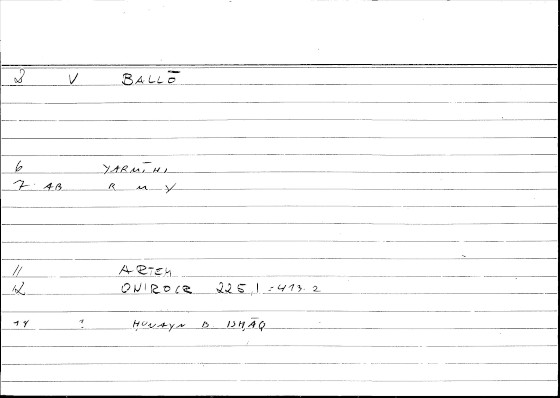 2 V BALLŌ
6 YARMĪHI
7 AB R M Y
11 ARTEM
12 ONIROCR 225,1 = 413.2
14 1 ḤUNAYN B. ISḤĀQ